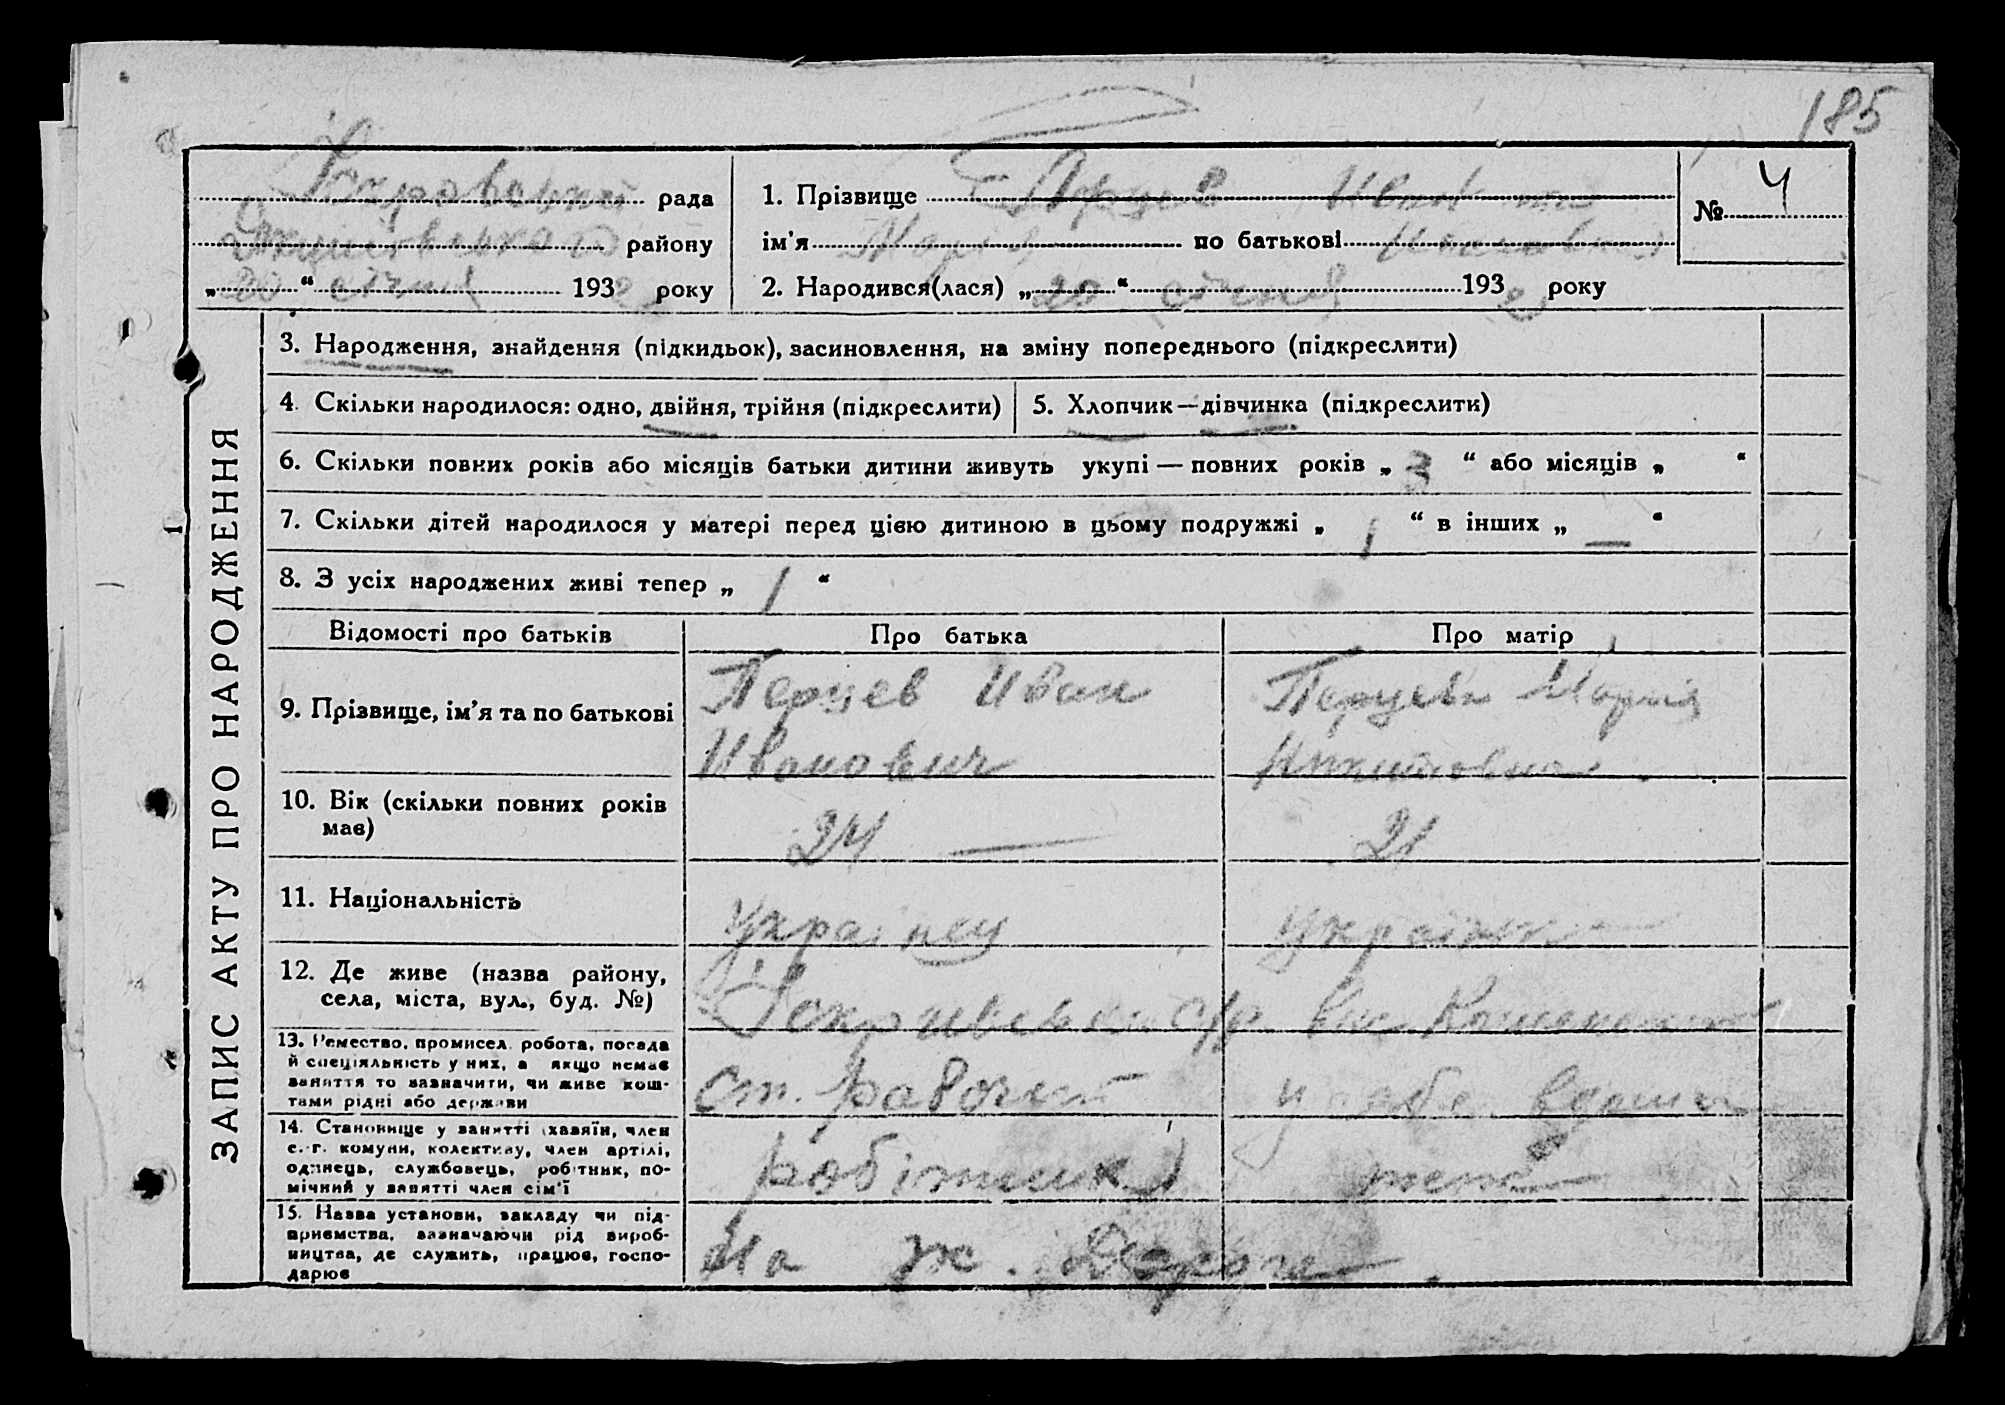 185
рада
району
„20“ січня 193 2 року
1. Прізвище Перцев Иван
ім'я Марія по батькові
2. Народився(лася) „20“ січня 193 2 року
№ 4
3. Народження, знайдення (підкидьок), засиновлення, на зміну попереднього (підкреслити)
4. Скільки народилося: одно, двійня, трійня (підкреслити)
5. Хлопчик—дівчинка (підкреслити)
6. Скільки повних років або місяців батьки дитини живуть укупі — повних років „ 3 “ або місяців „ “
7. Скільки дітей народилося у матері перед цією дитиною в цьому подружжі „ 1 “ в інших „ — “
8. З усіх народжених живі тепер „ 1 “
ЗАПИС АКТУ ПРО НАРОДЖЕННЯ
Відомості про батьків
Про батька
Про матір
9. Прізвище, ім'я та по батькові
Перцев Иван
Иванович
Перцева Марія
Никитовна
10. Вік (скільки повних років
має)
24 —
21
11. Національність
Украінец
Украінка
12. Де живе (назва району,
села, міста, вул., буд. №)
с/р
13. Ремество, промисел, робота, посада
й спеціяльність у них, а якщо немає
заняття то зазначити, чи живе кош-
тами рідні або держави
ст. рабочий
у
14. Становище у занятті (хазяїн, член
с.-г. комуни, колективу, член артілі,
одинець, службовець, робітник, по-
мічний у занятті член сім'ї
робітник
жена
15. Назва установи, закладу чи під-
приємства, зазначаючи рід вироб-
ництва, де служить, працює, госпо-
дарює
На ж. Дороге